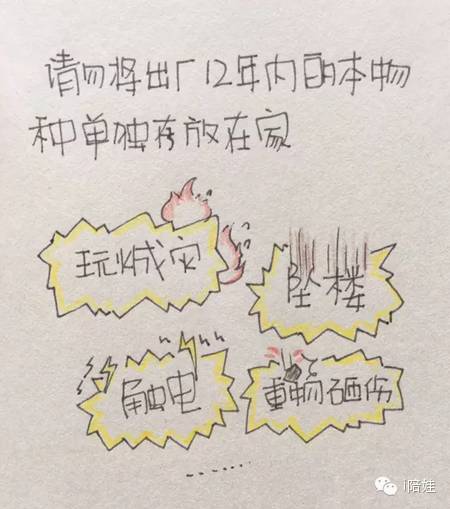 请勿将出厂12年内的本物
种单独存放在家
玩火成灾
坠楼
触电
重物砸伤
......
i陪娃